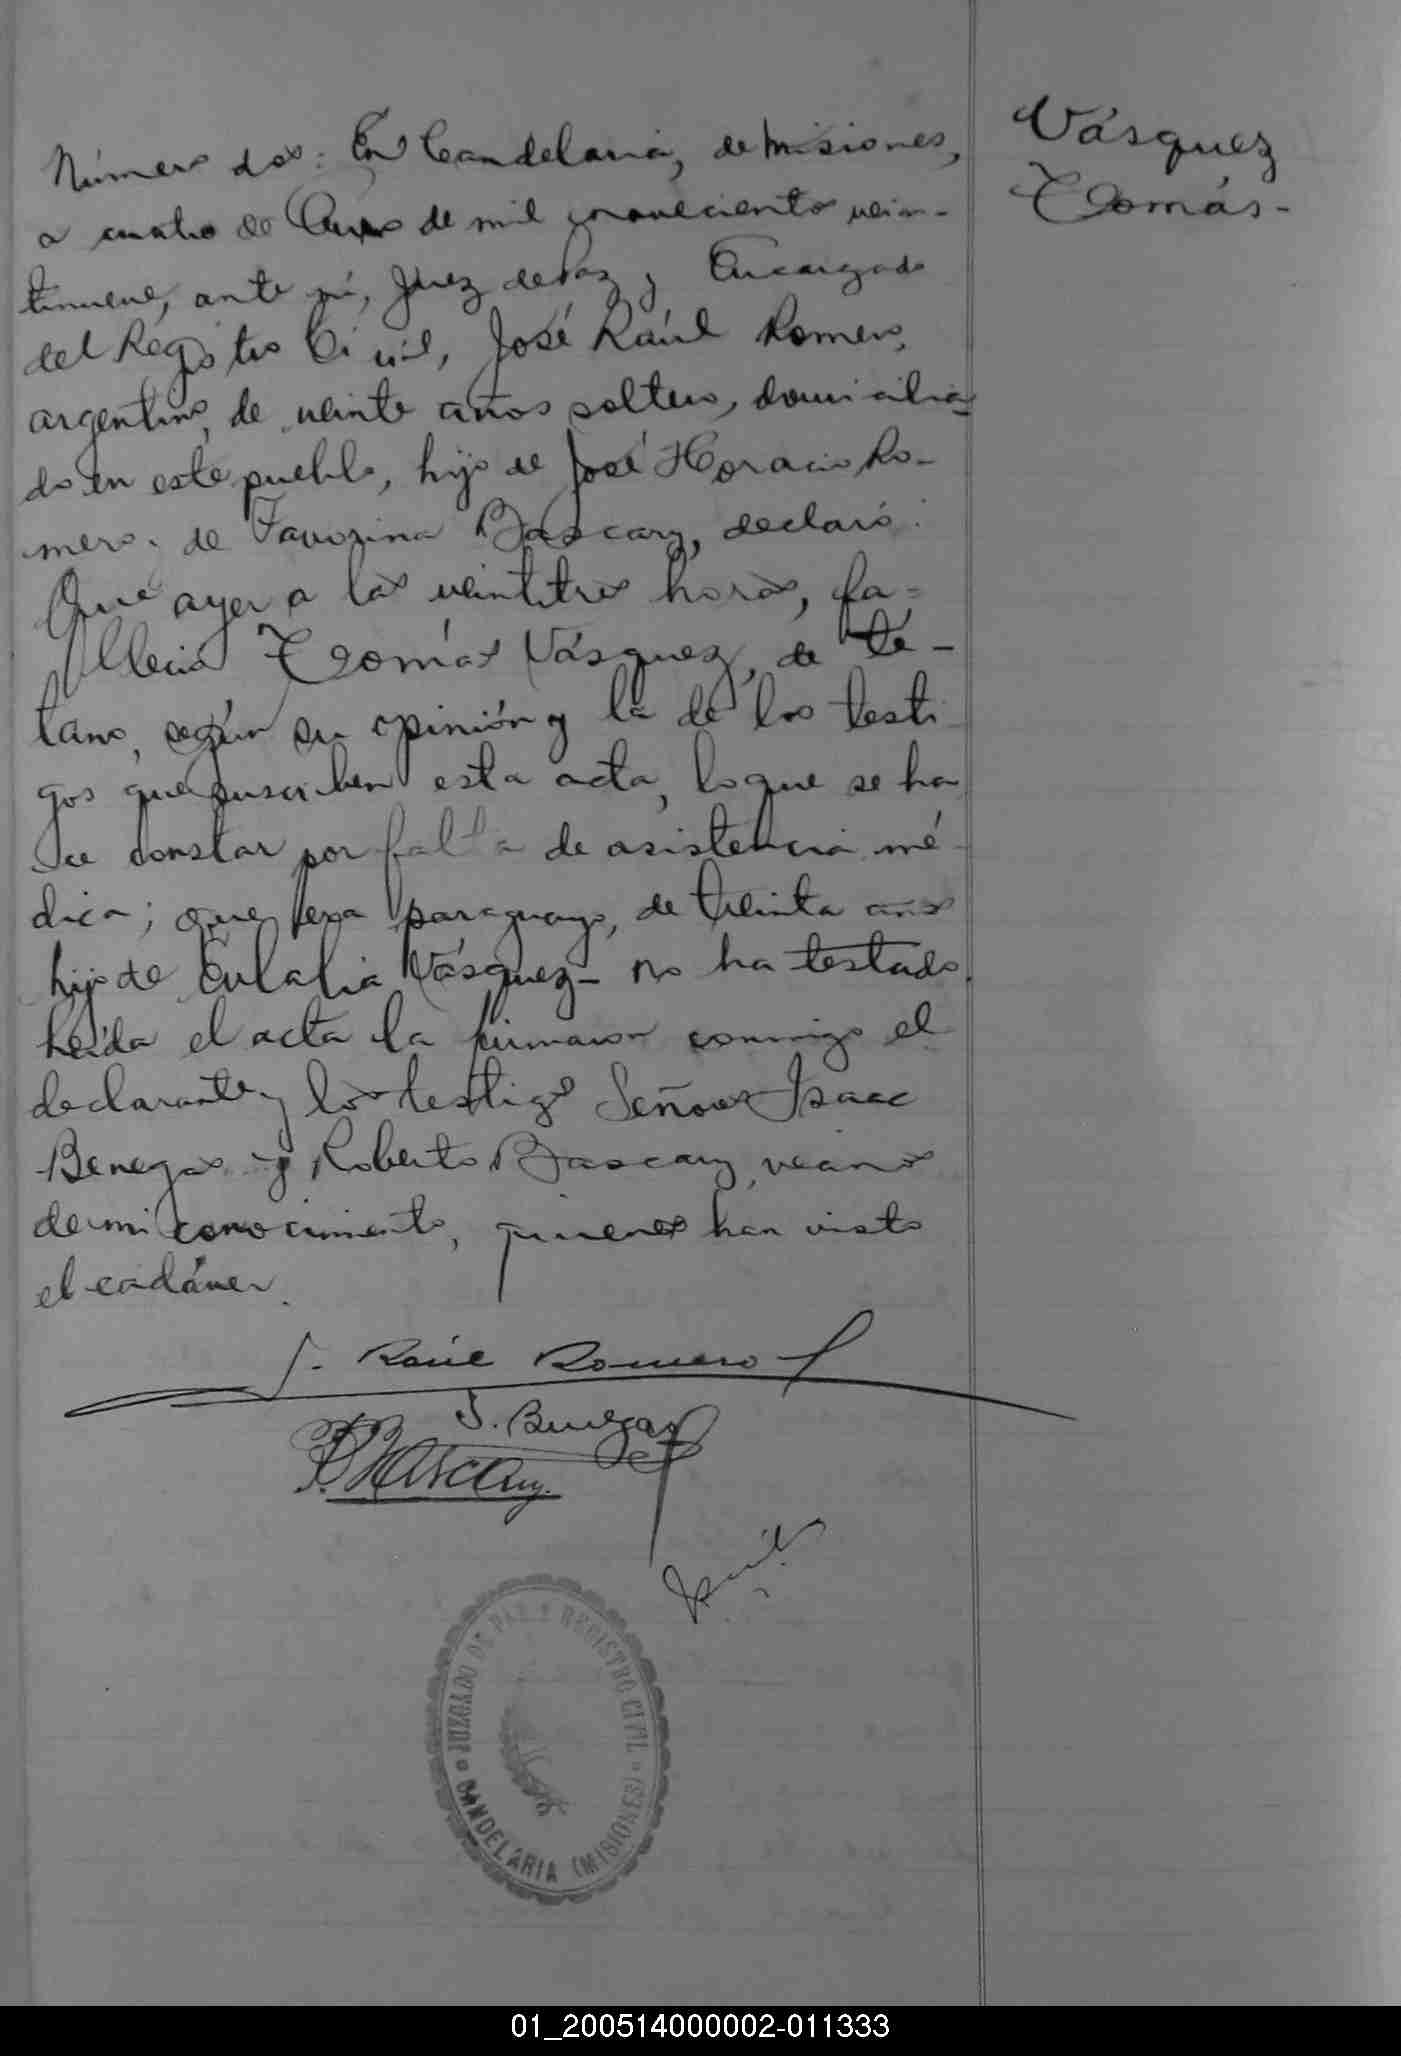 Vásquez
Tomás-
Número dos: En Candelaria, de Misiones,
a cuatro de Enero de mil novecientos vein-
tinueve, ante mí, Juez de Paz y Encargado
del Registro Civil, José Raúl Romero,
argentino, de veinte años soltero, domicilia-
do en este pueblo, hijo de José Horacio Ro-
mero y de Favorina Bascary, declaró:
Que ayer a las veintitres horas, fa-
lleció Tomás Vásquez, de té-
tano, según su opinión y la de los testi-
gos que suscriben esta acta, lo que se ha-
ce constar por falta de asistencia mé-
dica; que era paraguayo, de treinta años
hijo de Eulalia Vásquez- no ha testado.
Leída el acta la firmaron conmigo el
declarante y los testigos Señores Isaac
Benegas y Roberto Bascary, vecinos
de mi conocimiento, quienes han visto
el cadáver.
J. Raúl Romero
I. Benegas
R. Bascary.
JUZGADO DE PAZ Y REGISTRO CIVIL
CANDELARIA (MISIONES)
01_200514000002-011333